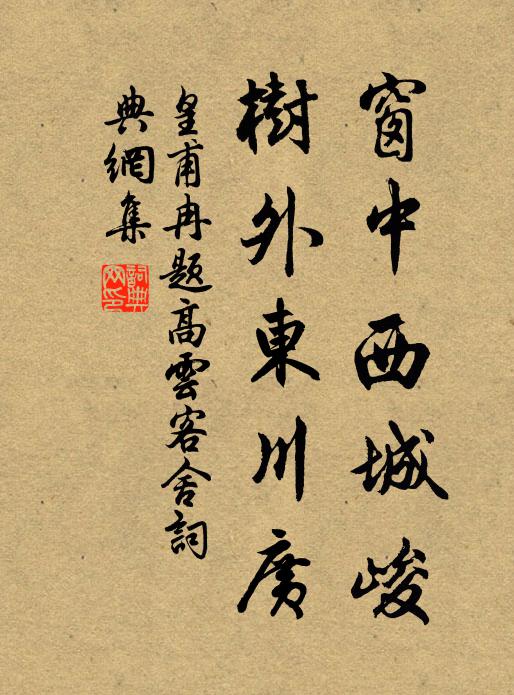 窗中西城峻
樹外東川廣
皇甫冉題高雲客舍詞
典網集
詞典網印